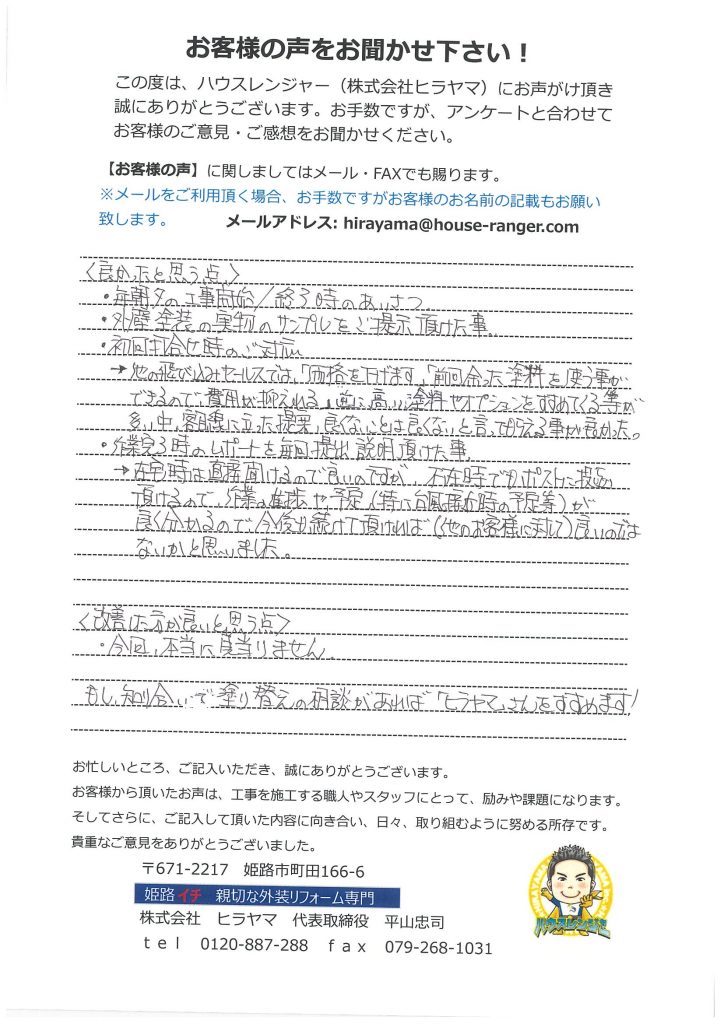 お客様の声をお聞かせ下さい！
この度は、ハウスレンジャー（株式会社ヒラヤマ）にお声がけ頂き
誠にありがとうございます。お手数ですが、アンケートと合わせて
お客様のご意見・ご感想をお聞かせください。
【お客様の声】に関しましてはメール・FAXでも賜ります。
※メールをご利用頂く場合、お手数ですがお客様のお名前の記載もお願い
致します。 メールアドレス: hirayama@house-ranger.com
〈良かったと思う点〉
・毎朝夕の工事開始/終了時のあいさつ
・外壁塗装の実物のサンプルをご提示頂けた事
・初回打合せ時のご対応
→他の飛び込みセールスでは、「価格を下げます」「前回余った塗料を使う事が
できるので費用が抑えれる」逆に高い塗料やオプションをすすめてくる等が
多い中、客目線に立った提案、良くないことは良くないと言って貰える事が良かった。
・作業完了時のレポートを毎回提出、説明頂けた事
→在宅時は直接聞けるので良いのですが、不在時でもポストに投函
頂けるので、作業の進捗や予定(特に台風接近時の予定等)が
良く分かるので、今後も続けて頂ければ(他のお客様に対して)良いのでは
ないかと思いました。
〈改善した方が良いと思う点〉
・今回、本当に見当りません。
もし、知り合いで塗り替えの相談があれば「ヒラヤマ」さんをすすめます!
お忙しいところ、ご記入いただき、誠にありがとうございます。
お客様から頂いたお声は、工事を施工する職人やスタッフにとって、励みや課題になります。
そしてさらに、ご記入して頂いた内容に向き合い、日々、取り組むように努める所存です。
貴重なご意見をありがとうございました。
〒671-2217 姫路市町田166-6
姫路イチ 親切な外装リフォーム専門
株式会社 ヒラヤマ 代表取締役 平山忠司
tel 0120-887-288 fax 079-268-1031
ハウスレンジャー